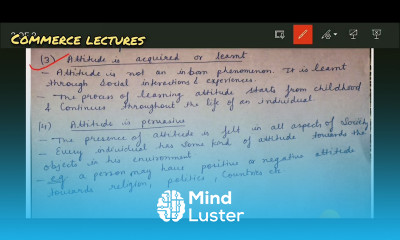 COMMERCE LECTURES
(3) Attitude is acquired or learnt
- Attitude is not an inborn phenomenon. It is learnt
through social interactions & experiences.
- The process of learning attitude starts from childhood
& continues throughout the life of an individual.
(4) Attitude is pervasive
- The presence of attitude is felt in all aspects of society
- Every individual has some kind of attitude towards the
objects in his environment
- Eg a person may have positive or negative attitude
towards religion, politics, Countries etc
Mind
Luster